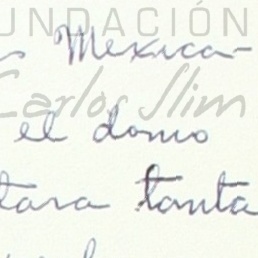 FUNDACIÓN
Mexica-
Carlos Slim
el domo
tara tanta